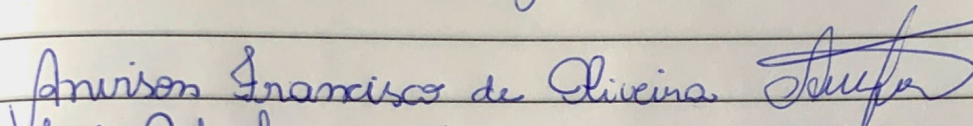 Anerison Francisco de Oliveira